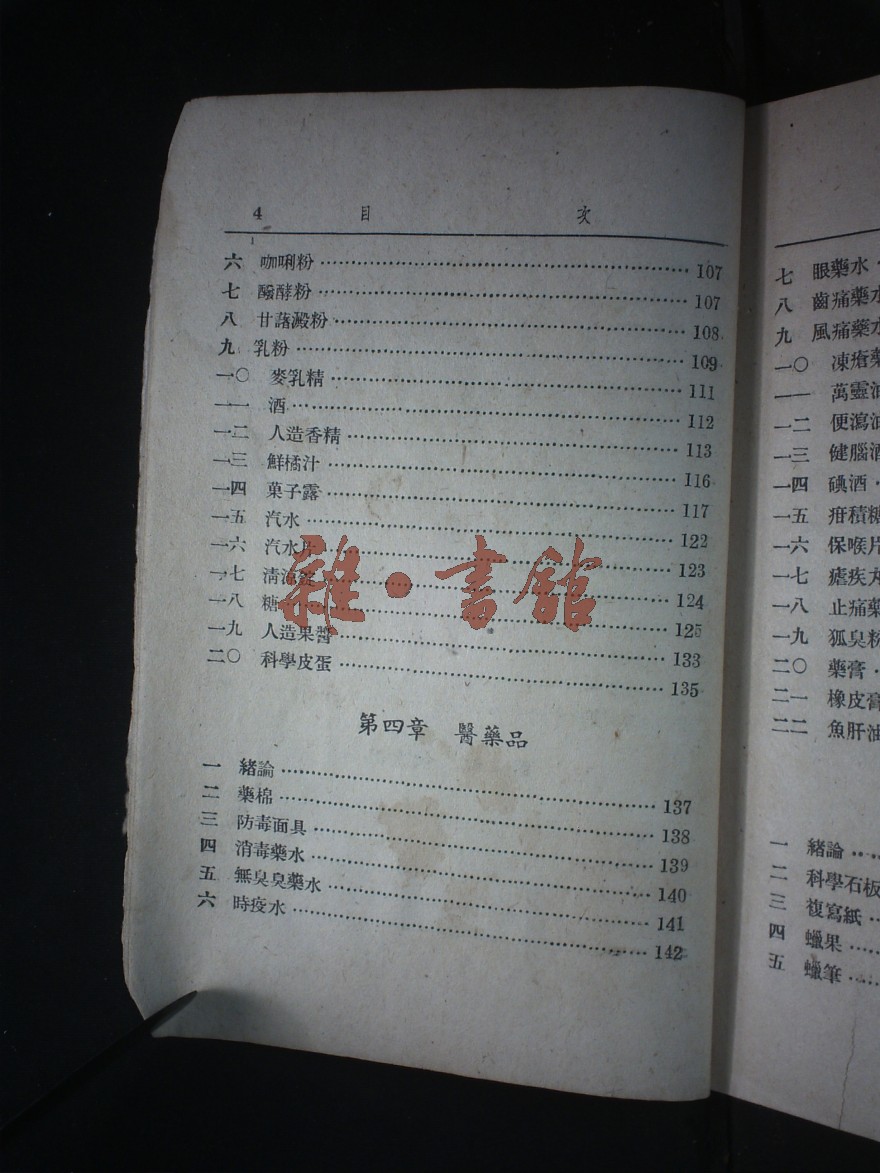 4 目 次
六 咖唎粉 107
七 醱酵粉 107
八 甘藷澱粉 108
九 乳粉 109
一〇 麥乳精 111
一一 酒 112
一二 人造香精 113
一三 鮮橘汁 116
一四 菓子露 117
一五 汽水 122
一六 汽水片 123
一七 清涼錠 124
一八 糖 125
一九 人造果醬 133
二〇 科學皮蛋 135
第四章 醫藥品
一 緒論 137
二 藥棉 138
三 防毒面具 139
四 消毒藥水 140
五 無臭臭藥水 141
六 時疫水 142
雜·書館
七 眼藥水
八 齒痛藥水
九 風痛藥水
一〇 凍瘡藥
一一 萬靈油
一二 便瀉油
一三 健腦酒
一四 碘酒
一五 疳積糖
一六 保喉片
一七 瘧疾丸
一八 止痛藥
一九 狐臭粉
二〇 藥膏
二一 橡皮膏
二二 魚肝油
一 緒論
二 科學石板
三 複寫紙
四 蠟果
五 蠟筆